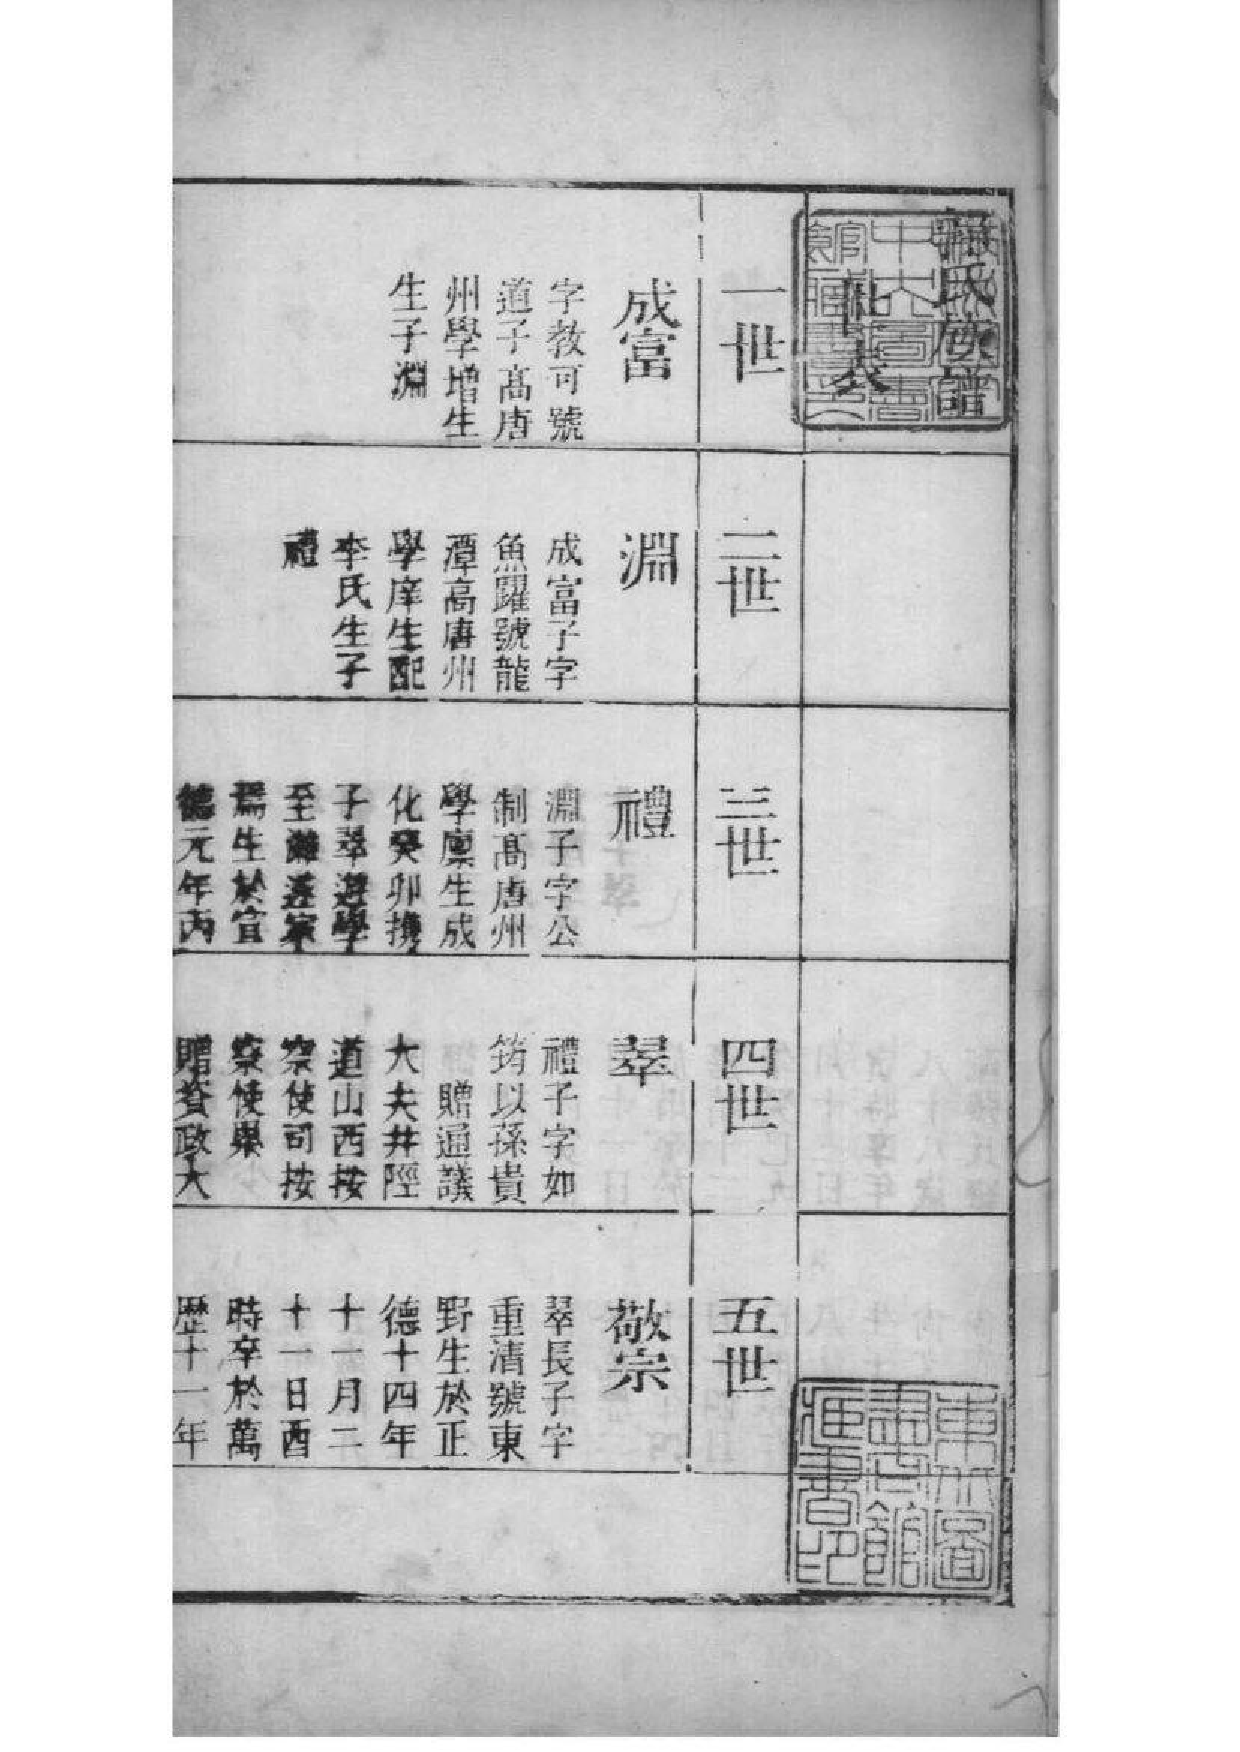 氏族譜
世表
一世
成富
字教可號
道子高唐
州學增生
生子淵
二世
淵
成富子字
魚躍號龍
潭高唐州
學庠生配
李氏生子
禮
三世
禮
淵子字公
制高唐州
學廩生成
化癸卯攜
子翠遊學
至濰遂家
焉生於宣
德元年丙
四世
翠
禮子字如
筠以孫貴
贈通議
大夫井陘
道山西按
察使司按
察使累
贈資政大
五世
敬宗
翠長子字
重清號東
野生於正
德十四年
十一月二
十一日酉
時卒於萬
歷十一年